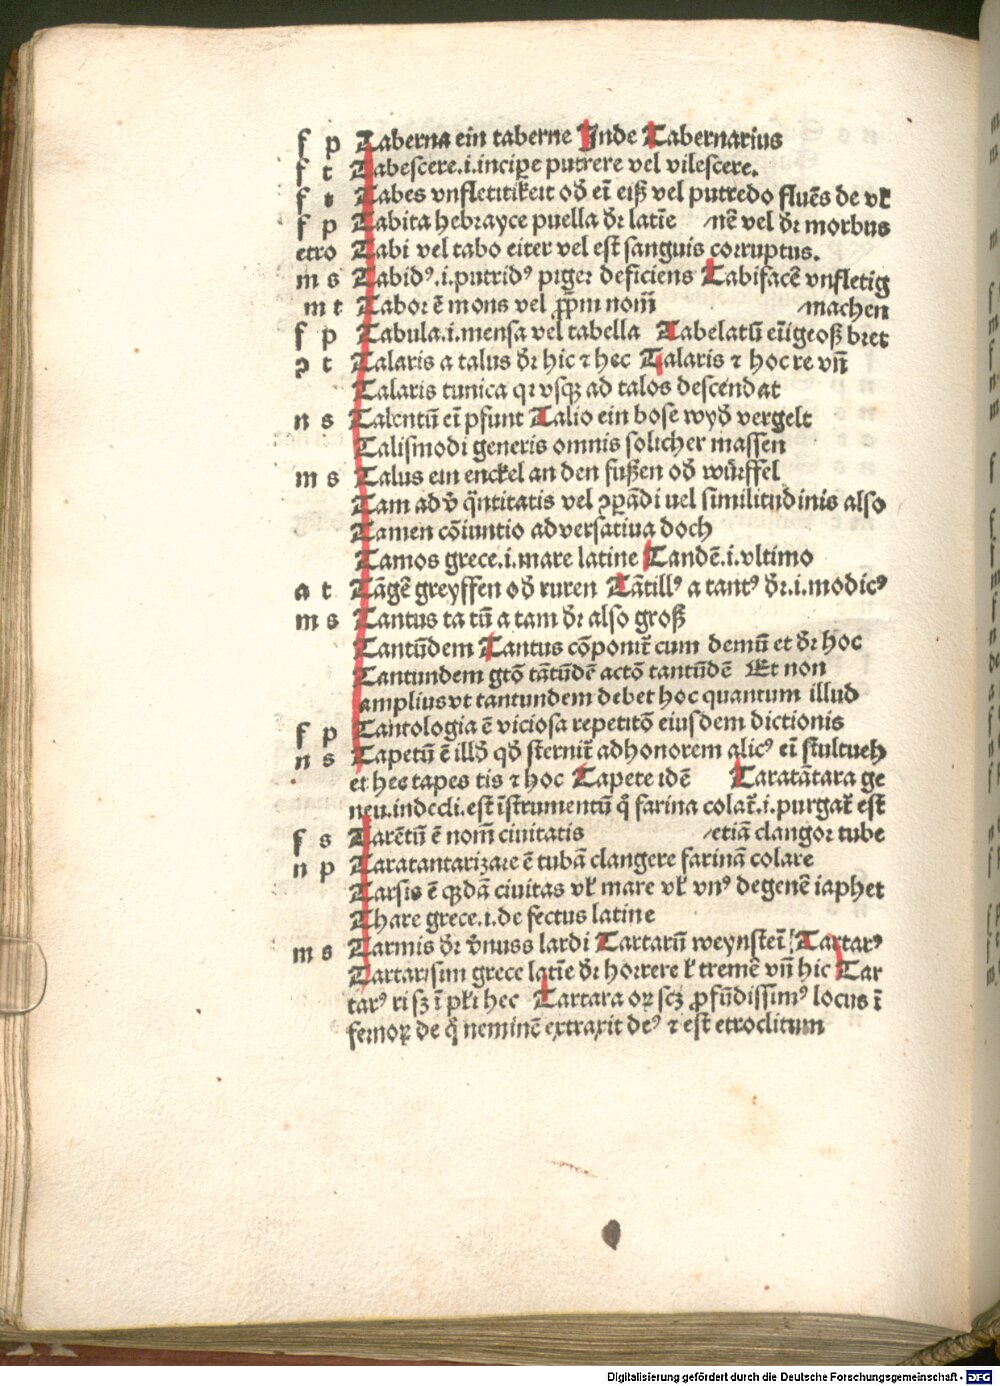 f p Taberna ein taberne Inde Tabernarius
f t Tabescere.i.incipe putrere vel vilescere.
f t Tabes vnfletitikeit od̕ eī eiß vel putredo fluēs de vl̕
f p Tabita hebrayce puella dr̄ latīe nē vel dr̄ morbus
etro Tabi vel tabo eiter vel est sanguis corruptus.
m s Tabidꝰ.i.putridꝰ piger deficiens Tabifacē vnfletig
m t Tabor ē mons vel ꝓpm nom̄ machen
f p Tabula.i.mensa vel tabella Tabelatū eī igeoß bret
ꝯ t Talaris a talus dr̄ hic ⁊ hec Talaris ⁊ hoc re vn̄
Talaris tunica qꝛ vsqꝫ ad talos descendat
n s Talentū eī pfunt Talio ein bose wyd̕ vergelt
Talismodi generis omnis solicher massen
m s Talus ein enckel an den fußen od̕ wuͤrffel
Tam adv̕ q̄ntitatis vel ꝯꝑādi uel similitudinis also
Tamen cōiuntio adversatiua doch
Tamos grece.i.mare latine Tandē.i.vltimo
a t Tāgē greyffen od̕ ruren Tātillꝰ a tantꝰ dr̄.i.modicꝰ
m s Tantus ta tū a tam dr̄ also groß
Tantūdem Tantus cōponit̄ cum demū et dr̄ hoc
Tantundem gtō tātūdē actō tantūdē Et non
amplius vt tantundem debet hoc quantum illud
f p Tantologia ē viciosa repetitō eiusdem dictionis
n s Tapetū ē illd̕ qd̕ sternit̄ ad honorem alicꝰ eī stultueh
et hec tapes tis ⁊ hoc Tapete idē Taratātara ge
neu.indecli.est īstrumentū q̄ farina colat̄.i.purgat̄ est
f s Tarētū ē nom̄ ciuitatis etiā clangor tube
n p Taratantarizare ē tubā clangere farinā colare
Tarsis ē qꝫdā ciuitas vl̕ mare vl̕ vnꝰ de genē iaphet
Thare grece.i.defectus latine
m s Tarmis dr̄ v̕nuss lardi Tartarū weynsteī Tartarꝰ
Tartarisim grece latīe dr̄ horrere l̕ tremē vn̄ hic Tar
tarꝰ ri sꝫ ī pl̕i hec Tartara oꝝ scꝫ ꝓfūdissimꝰ locus ī
fernoꝝ de q̄ neminē extraxit deꝰ ⁊ est etroclitum
Digitalisierung gefördert durch die Deutsche Forschungsgemeinschaft - DFG